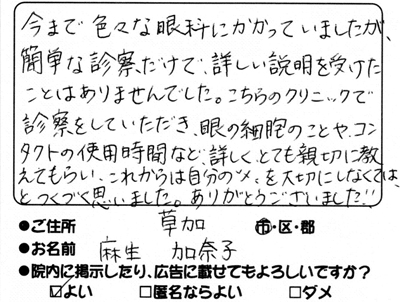 今まで色々な眼科にかかっていましたが、
簡単な診察だけで、詳しい説明を受けた
ことはありませんでした。こちらのクリニックで
診察をしていただき、眼の細胞のことや、コン
タクトの使用時間など、詳しく、とても親切に教
えてもらい、これからは自分の を大切にしなくては、
とつくづく思いました。ありがとうございました!!
●ご住所 草加 市・区・郡
●お名前 麻生 加奈子
●院内に掲示したり、広告に載せてもよろしいですか?
☑よい □匿名ならよい □ダメ